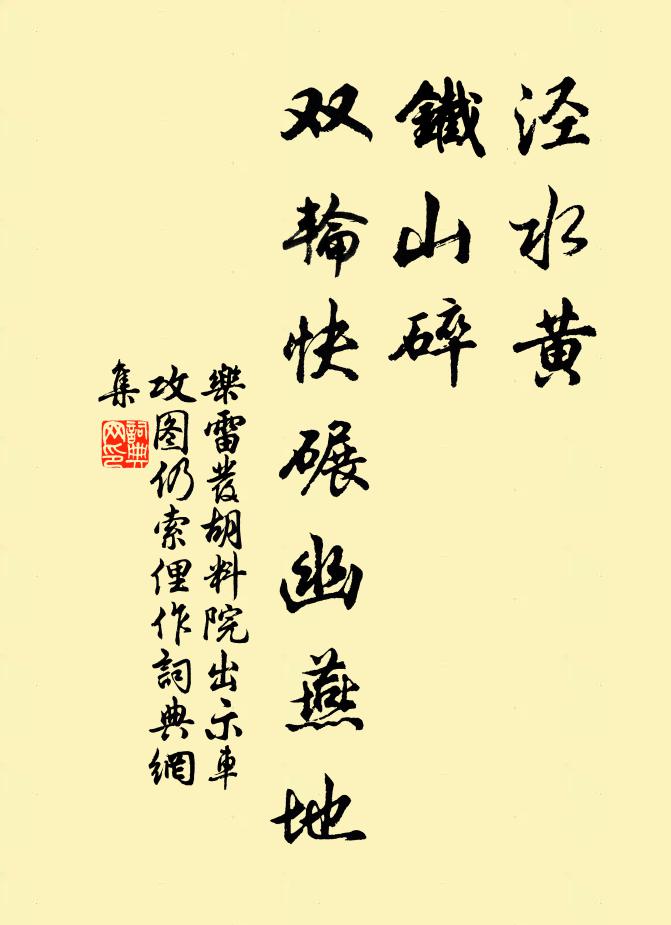 泾水黄
鐵山碎
双輪快碾幽燕地
樂雷發胡料院出示車
攻图仍索俚作詞典網
集
詞典
网印